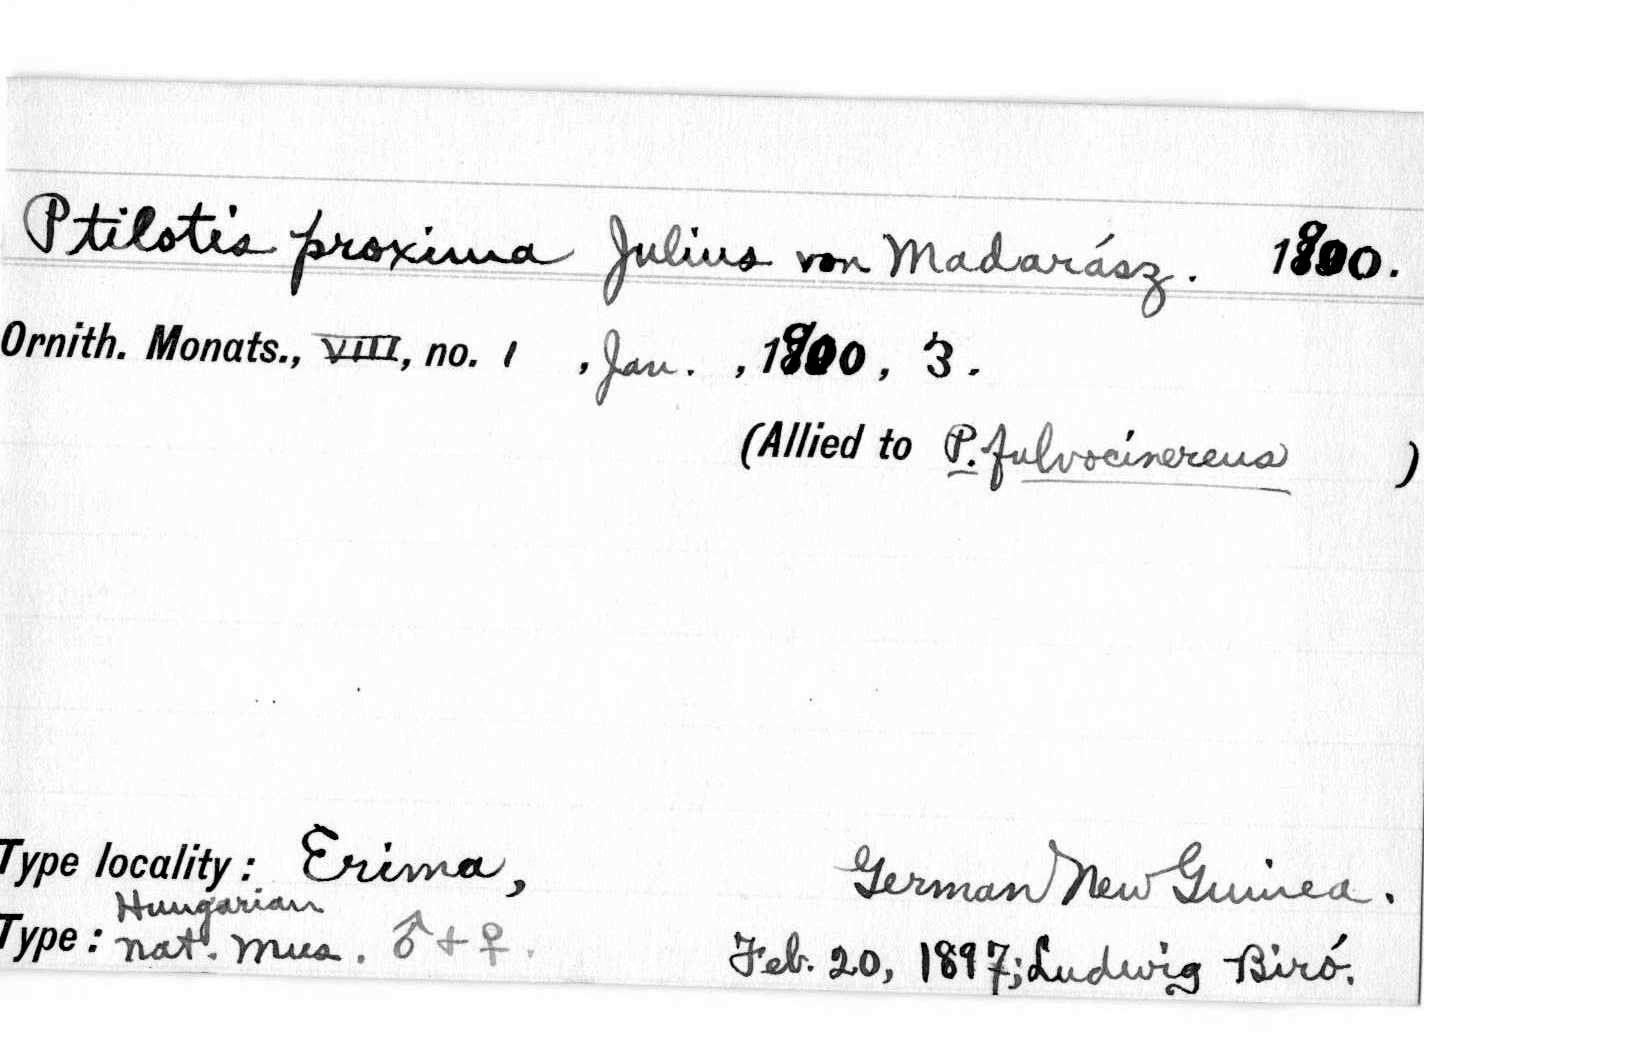 Ptilotis proxima Julius von Madarász. 1900.
Ornith. Monats., VIII, no. 1 , Jan. , 1900, 3.
(Allied to P. fulvocinereus )
Type locality: Erima, German New Guinea.
Hungarian
Type: Nat. Mus. ♂ + ♀. Feb. 20, 1897; Ludwig Biró.